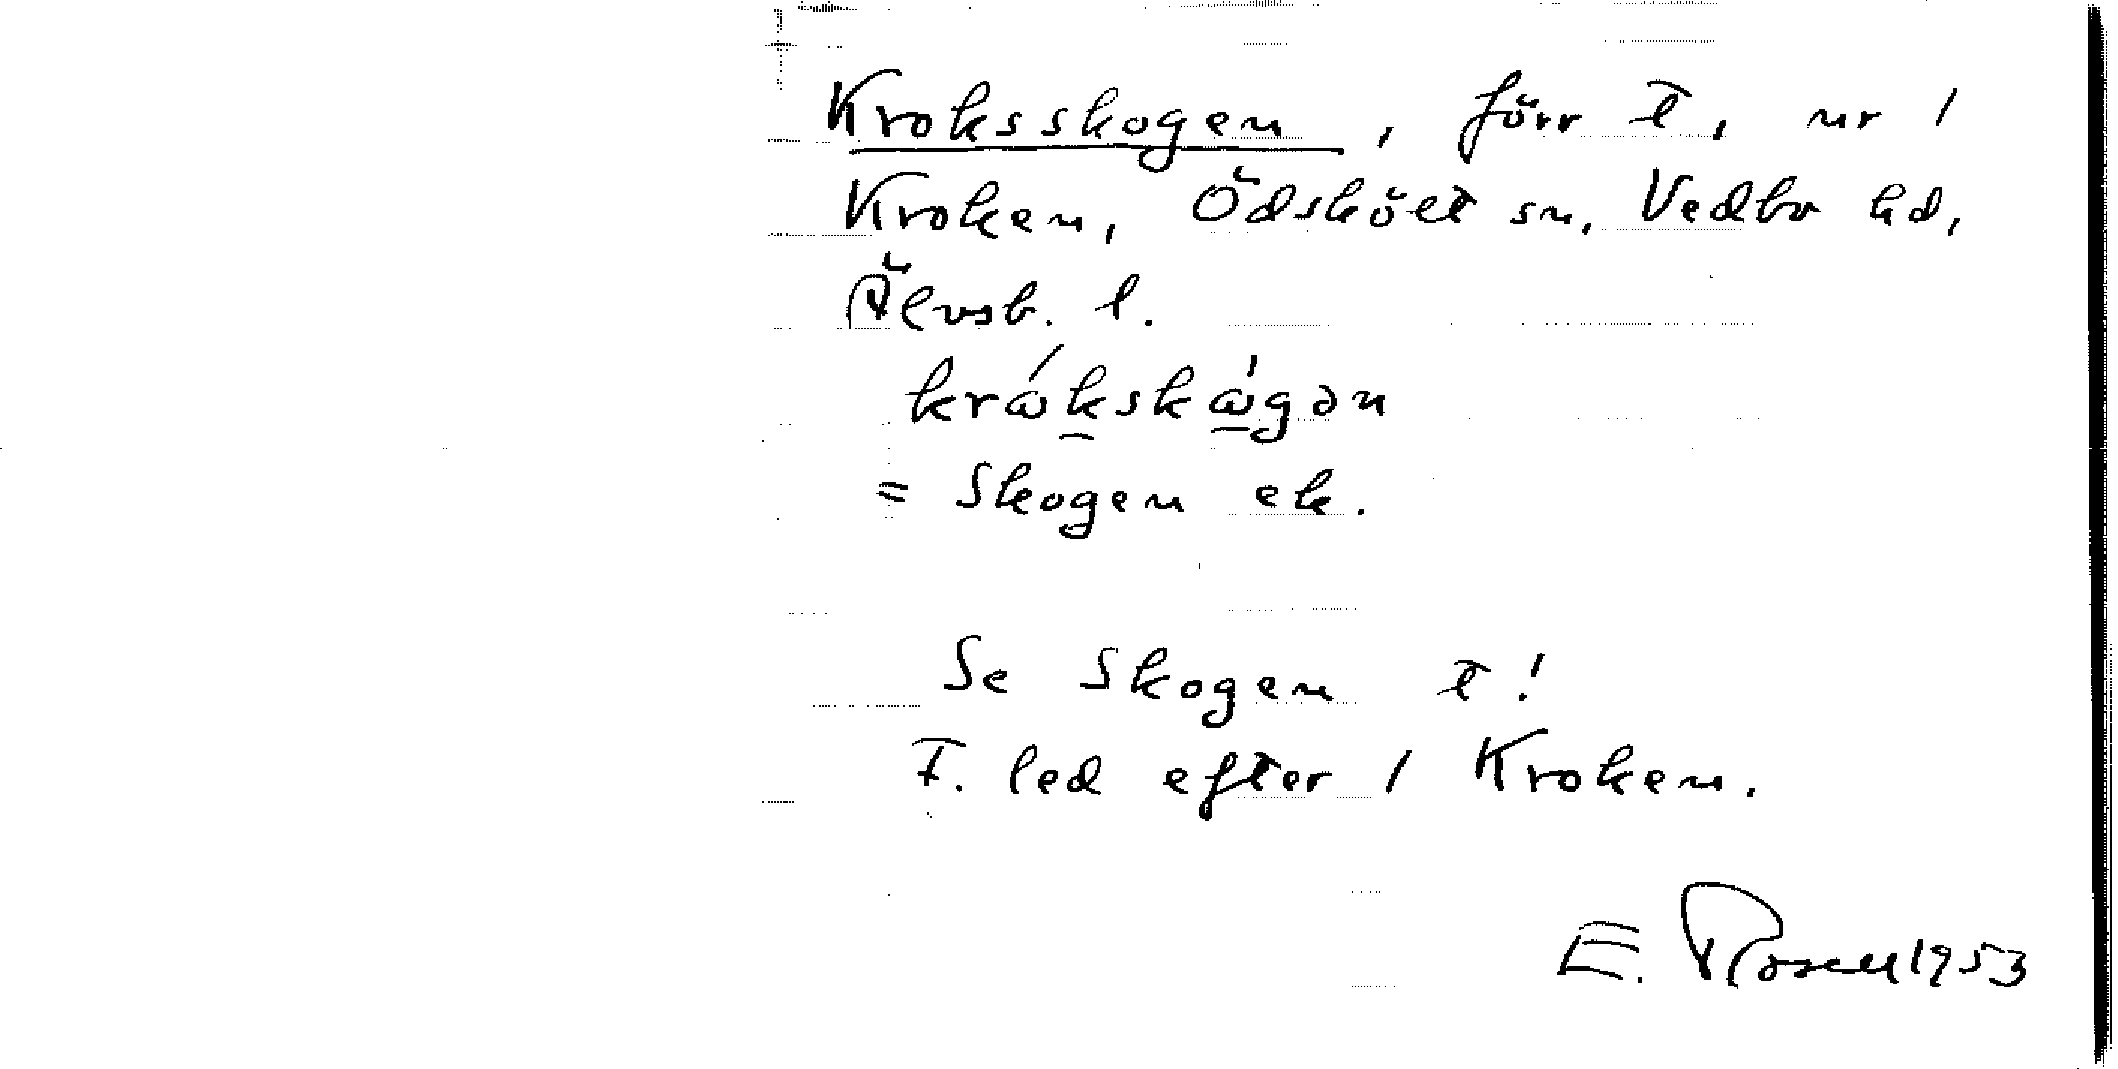 Kroksskogen, förr t, nr 1
Kroken, Ödskölt sn, Vedbo hd,
Älvsb. l.
krώkskὼgən
= Skogen ek.
Se Skogen t!
F. led efter 1 Kroken.
E. Rosell 1953